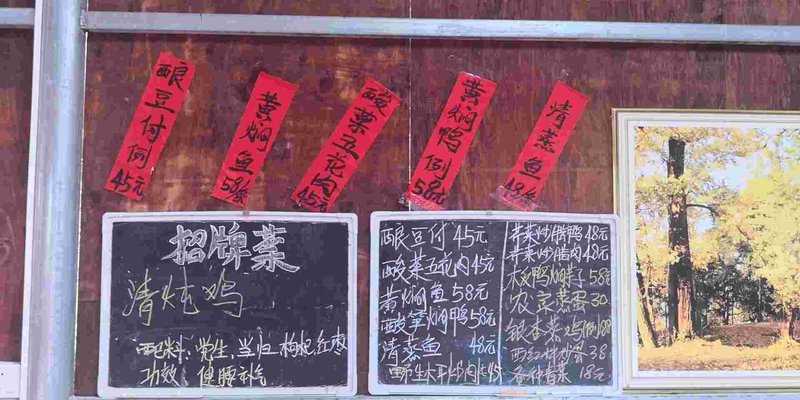 酿豆付例45元
黄焖鱼58/条
酸菜五花肉45元
黄焖鸭例58元
清蒸鱼48/条
招牌菜
清炖鸡
配料:党生、当归、枸杞、红枣
功效:健腰补气
酿豆付 45元
酸菜五花肉45元
黄焖鱼58元
酸笋焖鸭58元
清蒸鱼 48元
野生木耳炒肉45
芥菜炒腊鸭48元
芥菜炒腊肉48元
58元
农家蒸蛋30
银杏蒸鸡例88
西红柿炒蛋38
各种青菜18元